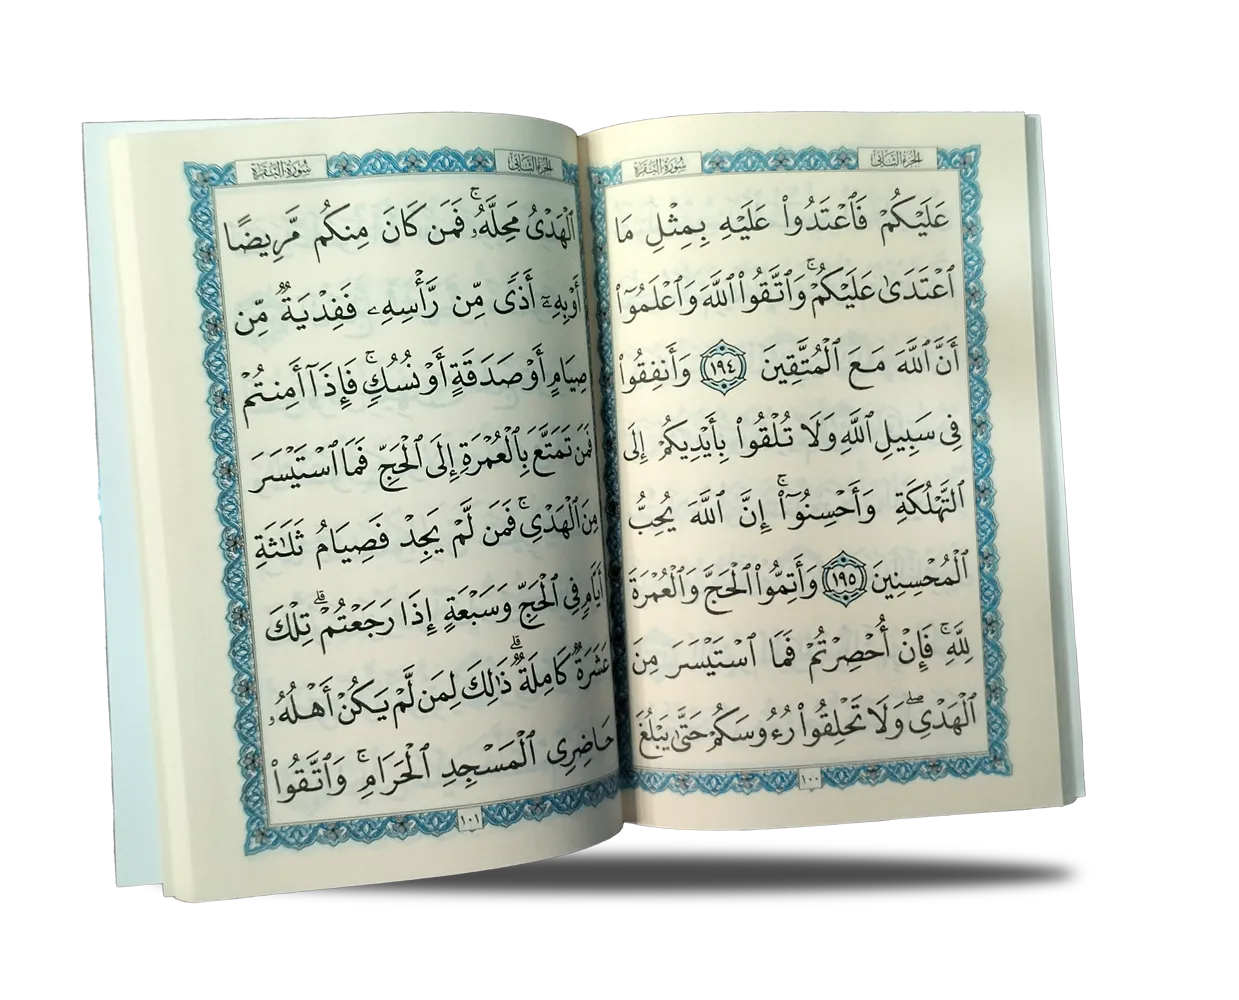 الجزء الثاني
سورة البقرة
عَلَيْكُمْ فَٱعْتَدُوا۟ عَلَيْهِ بِمِثْلِ مَا
ٱعْتَدَىٰ عَلَيْكُمْ ۚ وَٱتَّقُوا۟ ٱللَّهَ وَٱعْلَمُوٓا۟
أَنَّ ٱللَّهَ مَعَ ٱلْمُتَّقِينَ ١٩٤ وَأَنفِقُوا۟
فِى سَبِيلِ ٱللَّهِ وَلَا تُلْقُوا۟ بِأَيْدِيكُمْ إِلَى
ٱلتَّهْلُكَةِ وَأَحْسِنُوٓا۟ ۚ إِنَّ ٱللَّهَ يُحِبُّ
ٱلْمُحْسِنِينَ ١٩٥ وَأَتِمُّوا۟ ٱلْحَجَّ وَٱلْعُمْرَةَ
لِلَّهِ ۚ فَإِنْ أُحْصِرْتُمْ فَمَا ٱسْتَيْسَرَ مِنَ
ٱلْهَدْىِ ۖ وَلَا تَحْلِقُوا۟ رُءُوسَكُمْ حَتَّىٰ يَبْلُغَ
١٠٠
الجزء الثاني
سورة البقرة
ٱلْهَدْىُ مَحِلَّهُۥ ۚ فَمَن كَانَ مِنكُم مَّرِيضًا
أَوْ بِهِۦٓ أَذًى مِّن رَّأْسِهِۦ فَفِدْيَةٌ مِّن
صِيَامٍ أَوْ صَدَقَةٍ أَوْ نُسُكٍ ۚ فَإِذَآ أَمِنتُمْ
فَمَن تَمَتَّعَ بِٱلْعُمْرَةِ إِلَى ٱلْحَجِّ فَمَا ٱسْتَيْسَرَ
مِنَ ٱلْهَدْىِ ۚ فَمَن لَّمْ يَجِدْ فَصِيَامُ ثَلَـٰثَةِ
أَيَّامٍ فِى ٱلْحَجِّ وَسَبْعَةٍ إِذَا رَجَعْتُمْ ۗ تِلْكَ
عَشَرَةٌ كَامِلَةٌ ۗ ذَٰلِكَ لِمَن لَّمْ يَكُنْ أَهْلُهُۥ
حَاضِرِى ٱلْمَسْجِدِ ٱلْحَرَامِ ۚ وَٱتَّقُوا۟
١٠١